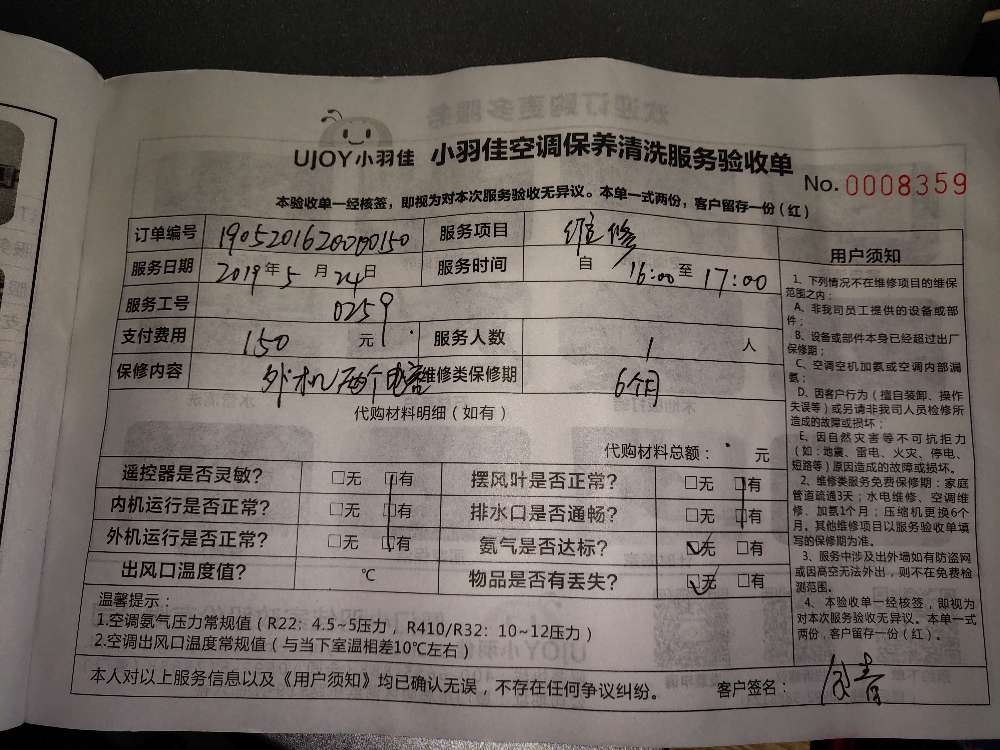 UJOY小羽佳 小羽佳空调保养清洗服务验收单
No.0008359
本验收单一经核签，即视为对本次服务验收无异议。本单一式两份，客户留存一份（红）
订单编号 1905201620000150 服务项目 维修
服务日期 2019年5月24日 服务时间 自 16:00至17:00
服务工号 0259
支付费用 150 元 服务人数 1 人
保修内容 外机两个电容 维修类保修期 6个月
代购材料明细（如有）
代购材料总额： 元
遥控器是否灵敏？ □无 □有 摆风叶是否正常？ □无 □有
内机运行是否正常？ □无 □有 排水口是否通畅？ □无 □有
外机运行是否正常？ □无 □有 氨气是否达标？ □无 □有
出风口温度值？ ℃ 物品是否有丢失？ □无 □有
温馨提示：
1.空调氨气压力常规值（R22：4.5~5压力，R410/R32：10~12压力）
2.空调出风口温度常规值（与当下室温相差10℃左右）
本人对以上服务信息以及《用户须知》均已确认无误，不存在任何争议纠纷。 客户签名：
用户须知
1、下列情况不在维修项目的维保
范围之内：
A、非我司员工提供的设备或部
件；
B、设备或部件本身已经超过出厂
保修期；
C、空调空机加氨或空调内部漏
氨；
D、因客户行为（擅自装卸、操作
失误等）或另请非我司人员检修所
造成的故障或损坏；
E、因自然灾害等不可抗拒力
（如：地震、雷电、火灾、停电、
短路等）原因造成的故障或损坏。
2、维修类服务免费保修期：家庭
管道疏通3天；水电维修、空调维
修、加氨1个月；压缩机更换6个
月。其他维修项目以服务验收单填
写的保修期为准。
3、服务中涉及出外墙如有防盗网
或因高空无法外出，则不在免费检
测范围。
4、本验收单一经核签，即视为
对本次服务验收无异议。本单一式
两份，客户留存一份（红）。